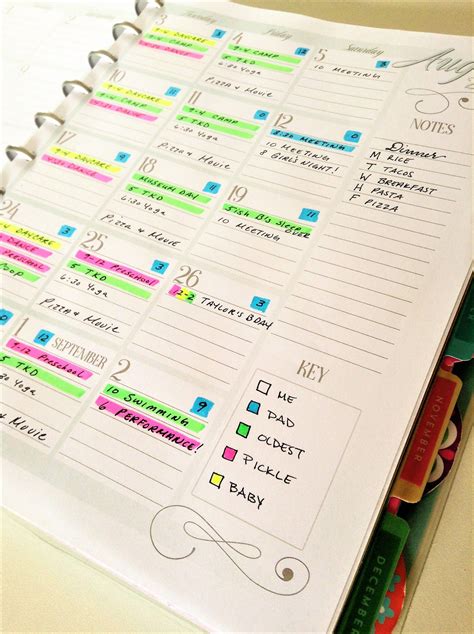 Friday
Saturday
Aug
3
9-4 DAYCARE
9-4 CAMP
4
9-4 CAMP
5 TKD
6:30 YOGA
PIZZA & MOVIE
5
10 MEETING
10
9-4 DAYCARE
9-4 CAMP
11
9-4 CAMP
5 TKD
6:30 YOGA
PIZZA & MOVIE
12
8:30 MEETING
10 MEETING
8 GIRL'S NIGHT!
17
9-4 DAYCARE
18
MUSEUM DAY
5 TKD
6:30 YOGA
PIZZA & MOVIE
19
5ISH B'S SLEEP
OVER
10 MEETING
24
9-4 DAYCARE
PRESCHOOL
25
9-12 PRESCHOOL
5 TKD
6:30 YOGA
PIZZA & MOVIE
26
12-2 TAYLOR'S BDAY
3
1 SEPTEMBER
9-12 PRESCHOOL
5 TKD
6:30 YOGA
& MOVIE
2
9
10 SWIMMING
6 PERFORMANCE!
NOTES
Dinner
M RICE
T TACOS
W BREAKFAST
H PASTA
F PIZZA
KEY
ME
DAD
OLDEST
PICKLE
BABY
NOVEMBER
DECEMBER